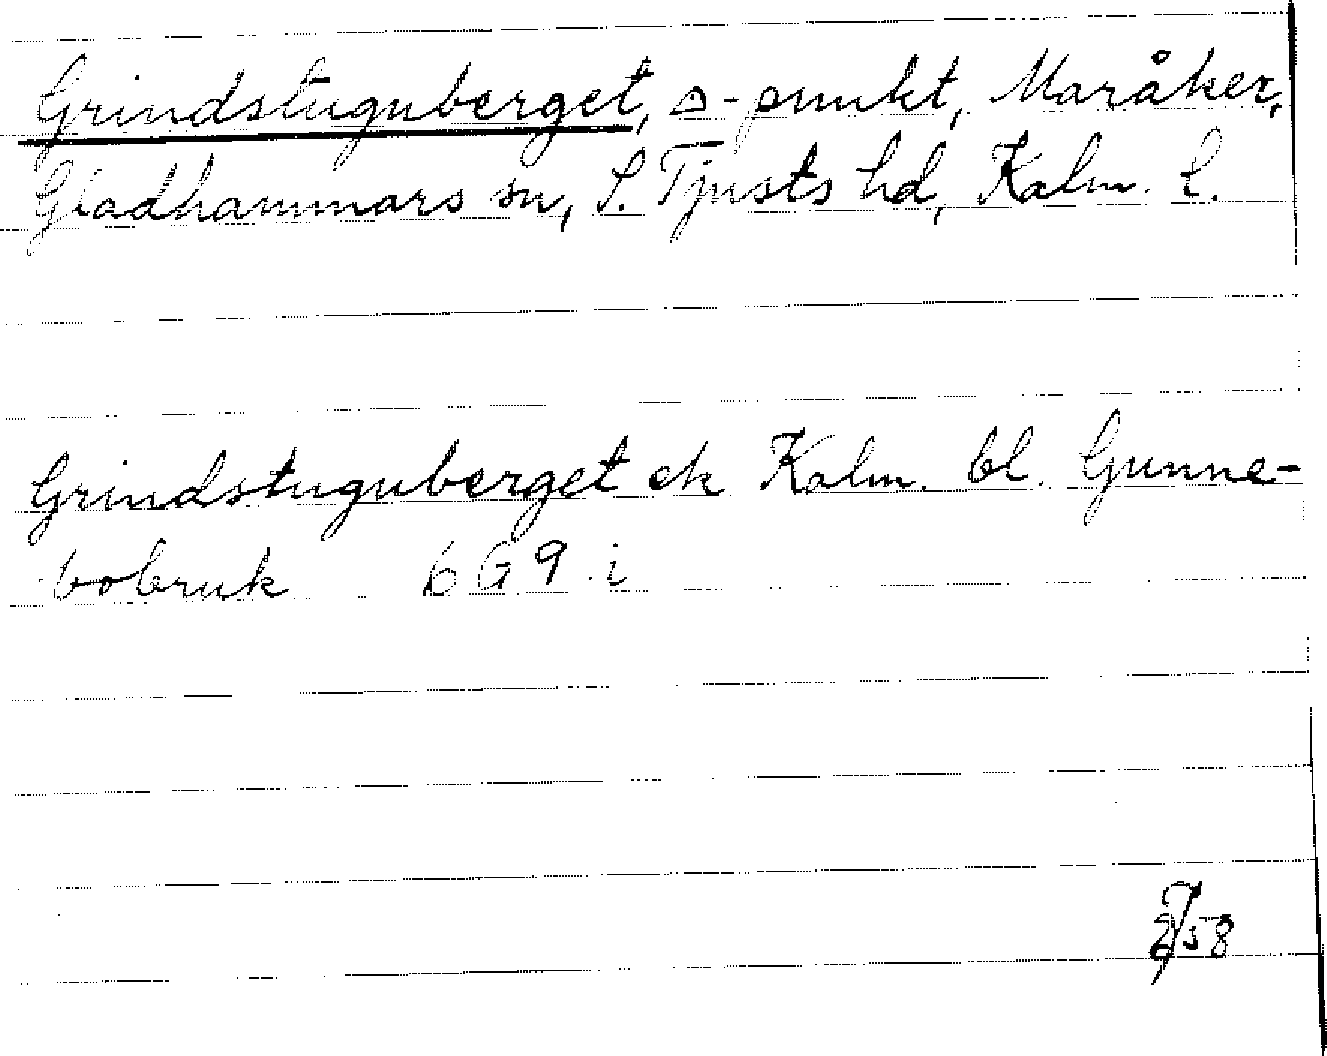 Grindstuguberget, △-punkt, Maråker,
Gladhammars sn, S. Tjusts hd, Kalm. l.
Grindstuguberget ek Kalm. bl. Gunne-
bobruk 6G9 i
58